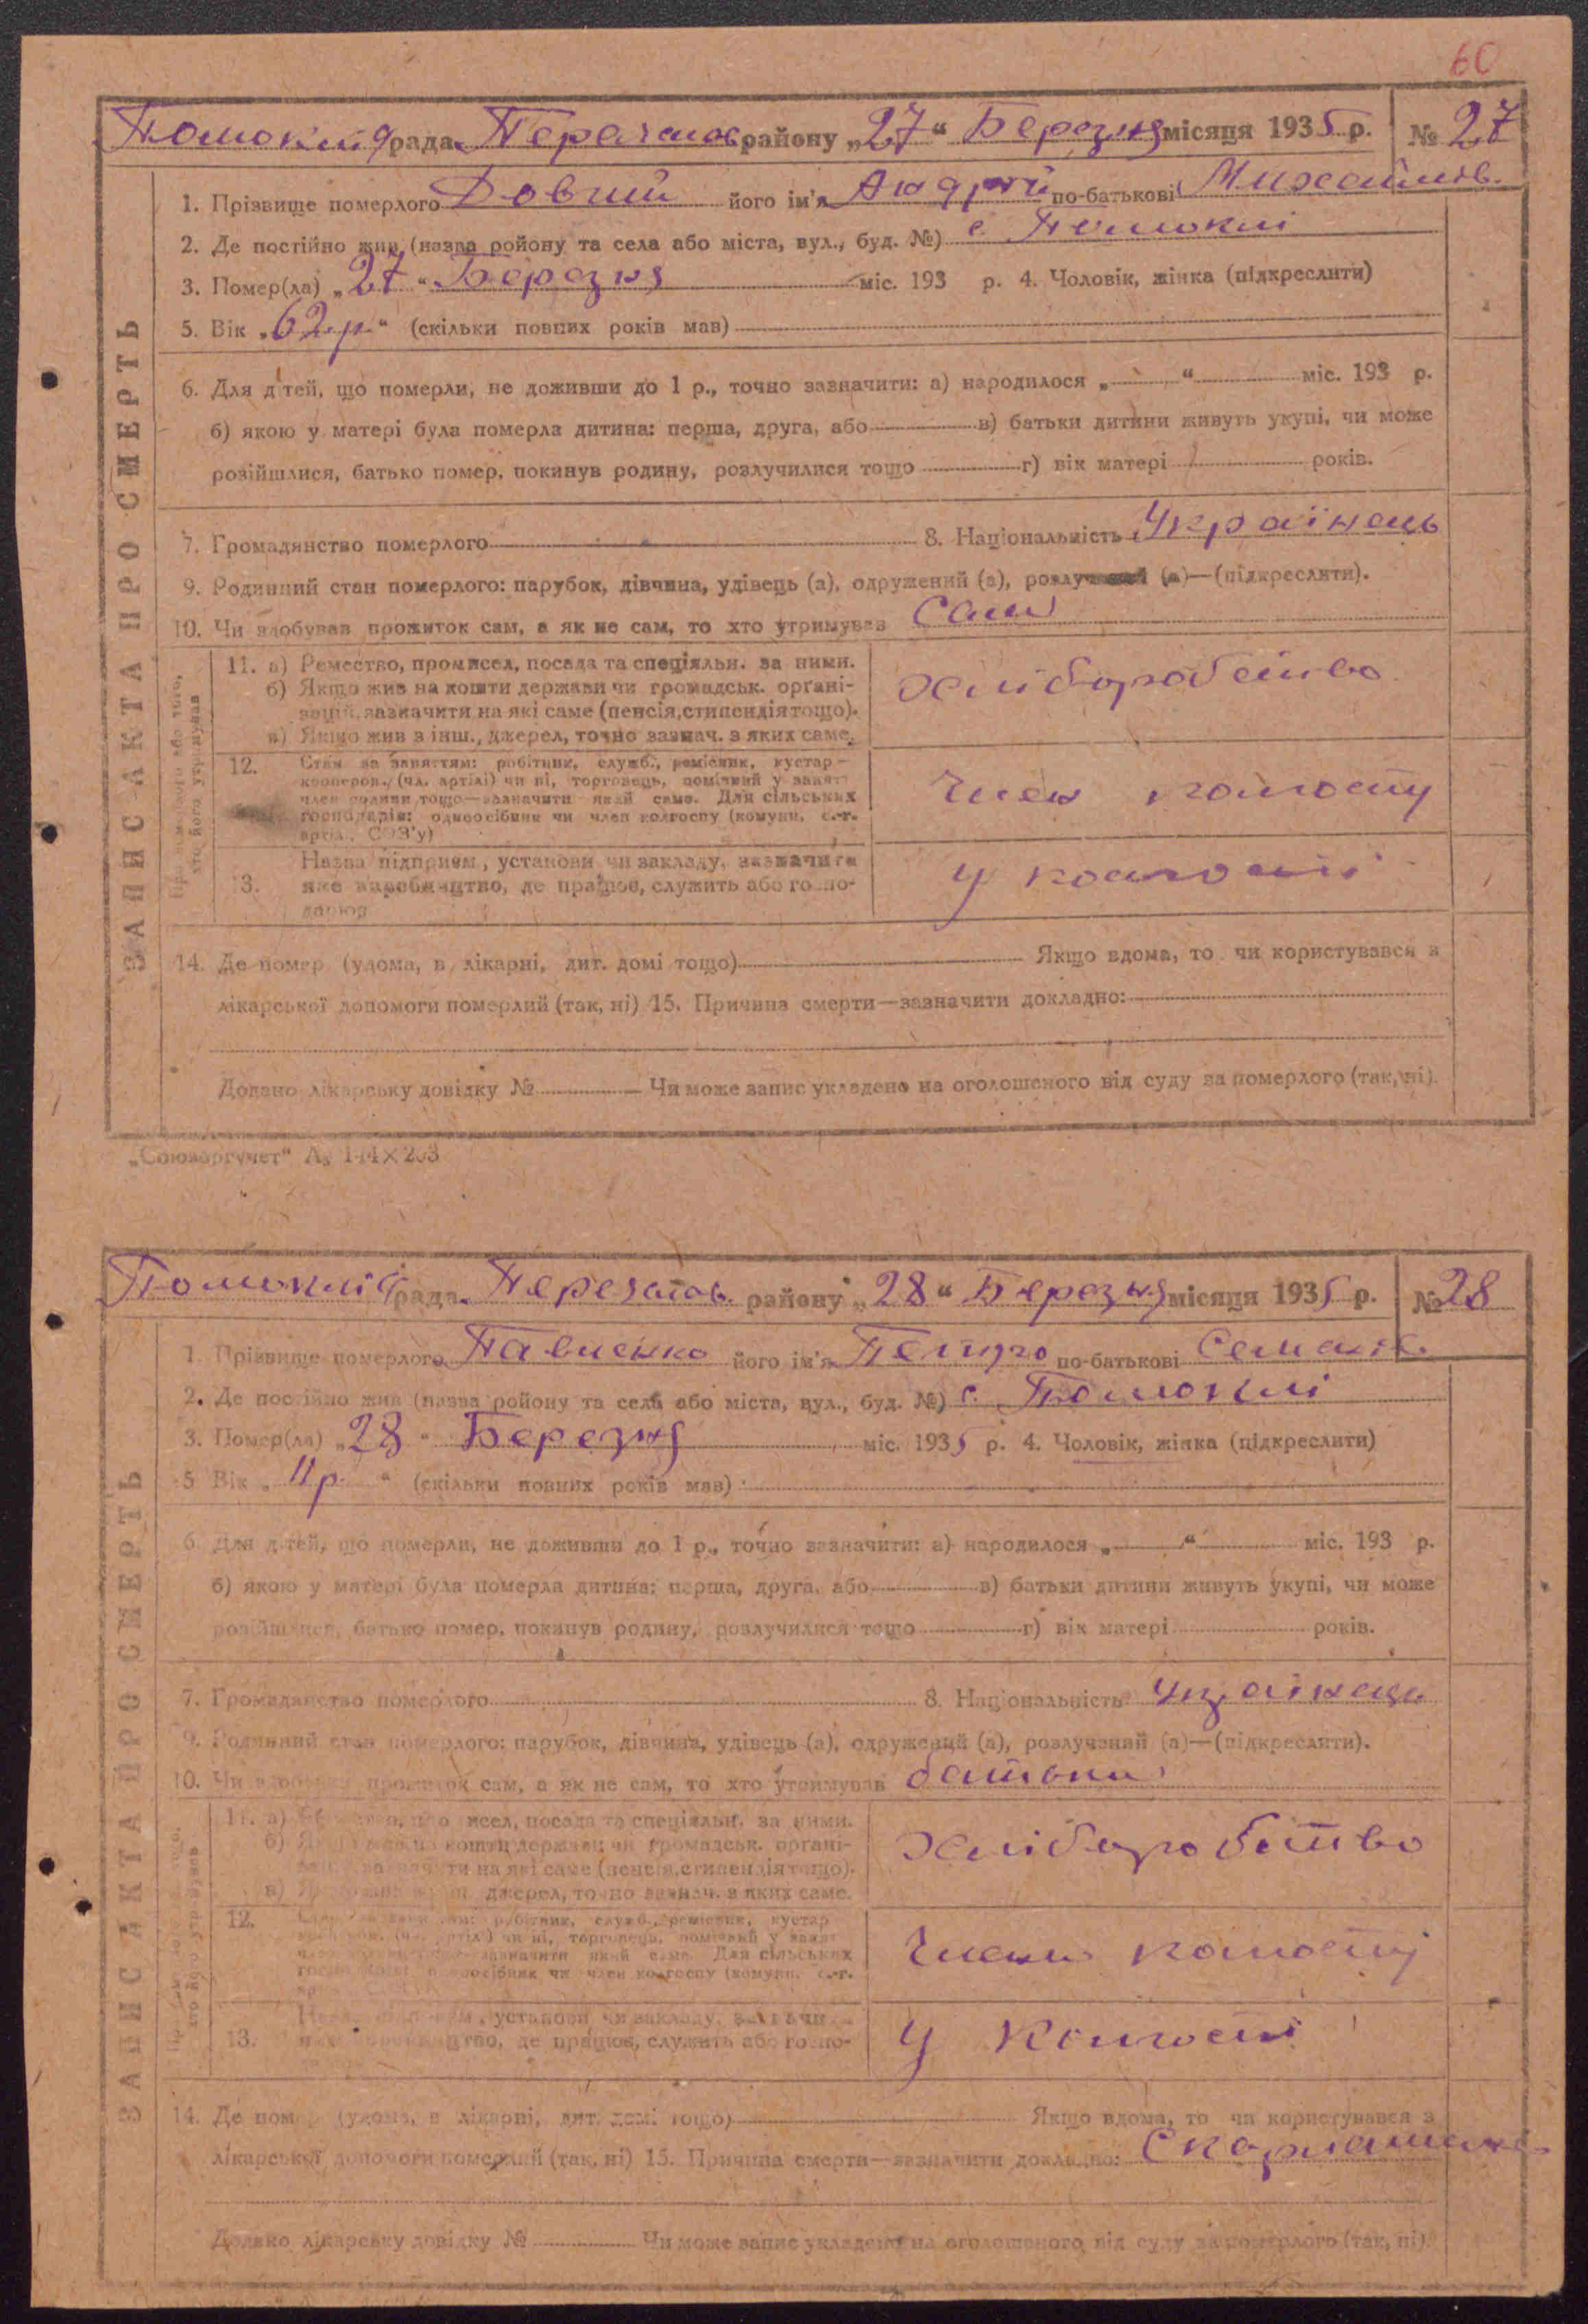 60
Помоклія рада Переяслов району „27“ Березня місяця 1935 р. № 27
1. Прізвище померлого Довгий його ім'я Андрій по-батькові Михайлов.
2. Де постійно жив (назва ройону та села або міста, вул., буд. №) с. Помоклі
3. Помер(ла) „27“ Березня міс. 193 р. 4. Чоловік, жінка (підкреслити)
5. Вік „62 р.“ (скільки повних років мав)
6. Для дітей, що померли, не доживши до 1 р., точно зазначити: а) народилося „ “ міс. 193 р.
б) якою у матері була померла дитина: перша, друга, або в) батьки дитини живуть укупі, чи може
розійшлися, батько помер, покинув родину, розлучилися тощо г) вік матері років.
7. Громадянство померлого 8. Національність Українець
9. Родинний стан померлого: парубок, дівчина, удівець (а), одружений (а), розлучений (а)—(підкреслити).
10. Чи здобував прожиток сам, а як не сам, то хто утримував Сам
11. а) Ремество, промисел, посада та спеціяльн. за ними.
б) Якщо жив на кошти держави чи громадськ. органі-
зацій, зазначити на які саме (пенсія, стипендія тощо).
в) Якщо жив з інш., джерел, точно зазнач. з яких саме.
Хліборобство
12. Стан за заняттям: робітник, служб., ремісник, кустар—
кооперов., (чл. артілі) чи ні, торговець, помічний у занят.
член родини тощо—зазначити який саме. Для сільських
господарів: одноосібник чи член колгоспу (комуни, с.-г.
артіл., СОЗ'у)
Член колгоспу
13. Назва підприєм., установи чи закладу, зазначити
яке виробництво, де працює, служить або госпо-
дарює
У колгоспі
14. Де помер (удома, в лікарні, дит. домі тощо) Якщо вдома, то чи користувався з
лікарської допомоги померлий (так, ні) 15. Причина смерти—зазначити докладно:
Додано лікарську довідку № Чи може запис укладено на оголошеного від суду за померлого (так, ні).
ЗАПИС АКТА ПРО СМЕРТЬ
„Союзоргучет“
Помоклія рада Переяслов. району „28“ Березня місяця 1935 р. № 28
1. Прізвище померлого Павленко його ім'я Петро по-батькові Семенов.
2. Де постійно жив (назва ройону та села або міста, вул., буд. №) с. Помоклі
3. Помер(ла) „28“ Березня міс. 1935 р. 4. Чоловік, жінка (підкреслити)
5 Вік „11 р.“ (скільки повних років мав)
6. Для дітей, що померли, не доживши до 1 р., точно зазначити: а) народилося „ “ міс. 193 р.
б) якою у матері була померла дитина: перша, друга, або в) батьки дитини живуть укупі, чи може
розійшлися, батько помер, покинув родину, розлучилися тощо г) вік матері років.
7. Громадянство померлого 8. Національність Українець
9. Родинний стан померлого: парубок, дівчина, удівець (а), одружений (а), розлучений (а)—(підкреслити).
10. Чи здобував прожиток сам, а як не сам, то хто утримував батьки
11. а) Ремество, промисел, посада та спеціяльн. за ними.
б) Якщо жив на кошти держави чи громадськ. органі-
зацій, зазначити на які саме (пенсія, стипендія тощо).
в) джерел, точно зазнач. з яких саме.
Хліборобство
12. робітник, служб., ремісник, кустар
чи ні, торговець, помічний у занят.
зазначити який саме. Для сільських
одноосібник чи член колгоспу (комуни, с.-г.
Члени колгоспу
13. установи чи закладу, зазначи
де працює, служить або госпо-
У колгоспі
14. Де помер (удома, в лікарні, дит. домі тощо) Якщо вдома, то чи користувався з
лікарської допомоги померлий (так, ні) 15. Причина смерти—зазначити докладно: Скарлатина
Додано лікарську довідку № Чи може запис укладено на оголошеного від суду за померлого (так, ні).
ЗАПИС АКТА ПРО СМЕРТЬ